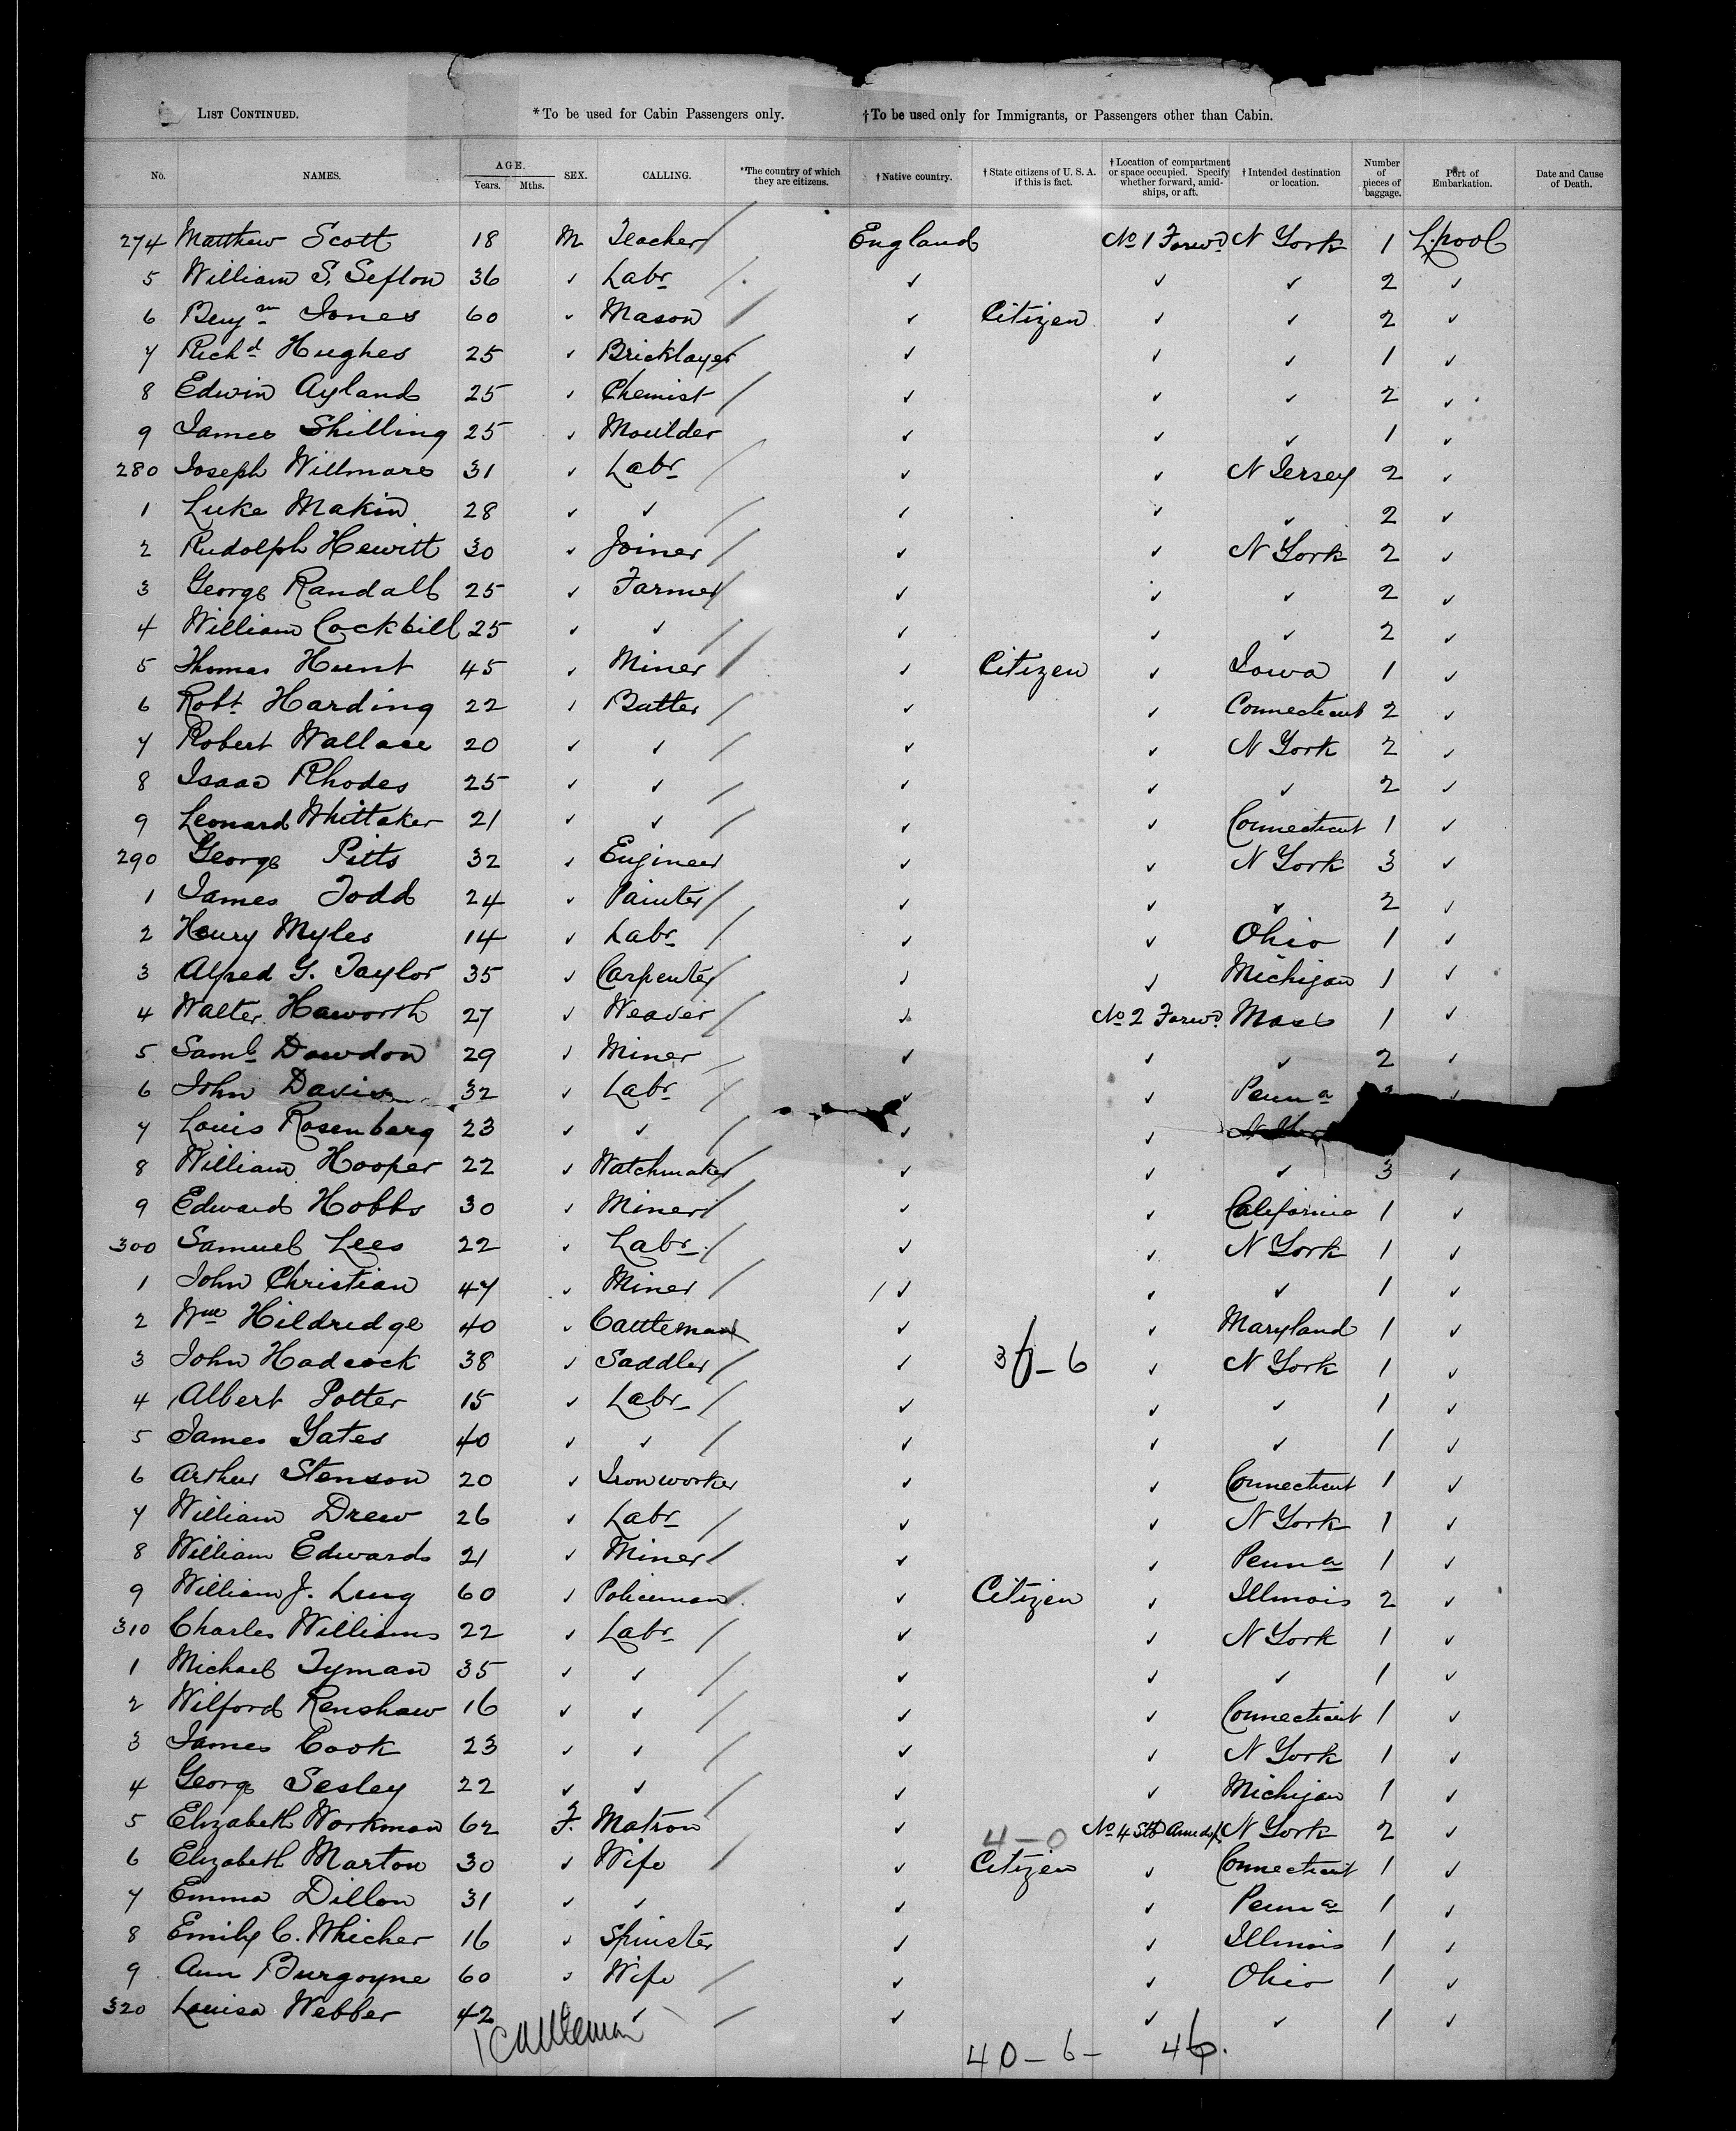 List Continued. *To be used for Cabin Passengers only. †To be used only for Immigrants, or Passengers other than Cabin.
No. NAMES. AGE. Years. Mths. SEX. CALLING. *The country of which they are citizens. †Native country. †State citizens of U. S. A. if this is fact. †Location of compartment or space occupied. Specify whether forward, amidships, or aft. †Intended destination or location. Number of pieces of baggage. Port of Embarkation. Date and Cause of Death.
274 Matthew Scott 18 M Teacher England No 1 Forwd N York 1 L.pool
5 William S. Sefton 36 ✓ Labr ✓ ✓ ✓ 2 ✓
6 Benjn Jones 60 ✓ Mason ✓ Citizen ✓ ✓ 2 ✓
7 Richd Hughes 25 ✓ Bricklayer ✓ ✓ ✓ 1 ✓
8 Edwin Ayland 25 ✓ Chemist ✓ ✓ ✓ 2 ✓
9 James Shilling 25 ✓ Moulder ✓ ✓ ✓ 1 ✓
280 Joseph Willmare 31 ✓ Labr ✓ ✓ N Jersey 2 ✓
1 Luke Makin 28 ✓ ✓ ✓ ✓ ✓ 2 ✓
2 Rudolph Hewitt 30 ✓ Joiner ✓ ✓ N York 2 ✓
3 George Randall 25 ✓ Farmer ✓ ✓ ✓ 2 ✓
4 William Cockbill 25 ✓ ✓ ✓ ✓ ✓ 2 ✓
5 Thomas Hunt 45 ✓ Miner ✓ Citizen ✓ Iowa 1 ✓
6 Robt Harding 22 ✓ Batter ✓ ✓ Connecticut 2 ✓
7 Robert Wallace 20 ✓ ✓ ✓ ✓ N York 2 ✓
8 Isaac Rhodes 25 ✓ ✓ ✓ ✓ ✓ 2 ✓
9 Leonard Whittaker 21 ✓ ✓ ✓ ✓ Connecticut 1 ✓
290 George Pitts 32 ✓ Engineer ✓ ✓ N York 3 ✓
1 James Todd 24 ✓ Painter ✓ ✓ ✓ 2 ✓
2 Henry Myles 14 ✓ Labr ✓ ✓ Ohio 1 ✓
3 Alfred G. Taylor 35 ✓ Carpenter ✓ ✓ Michigan 1 ✓
4 Walter Haworth 27 ✓ Weaver ✓ No 2 Forwd Mass 1 ✓
5 Saml Dawdon 29 ✓ Miner ✓ ✓ ✓ 2 ✓
6 John Davis 32 ✓ Labr ✓ ✓ Penna ✓
7 Louis Rosenberg 23 ✓ ✓ ✓ ✓
8 William Hooper 22 ✓ Watchmaker ✓ ✓ ✓ 3 ✓
9 Edward Hobbs 30 ✓ Miner ✓ ✓ California 1 ✓
300 Samuel Lees 22 ✓ Labr ✓ ✓ N York 1 ✓
1 John Christian 47 ✓ Miner ✓ ✓ ✓ 1 ✓
2 Wm Hildredge 40 ✓ Cattleman ✓ ✓ Maryland 1 ✓
3 John Hadcock 38 ✓ Saddler ✓ 36-6 ✓ N York 1 ✓
4 Albert Potter 15 ✓ Labr ✓ ✓ ✓ 1 ✓
5 James Yates 40 ✓ ✓ ✓ ✓ ✓ 1 ✓
6 Arthur Stenson 20 ✓ Iron worker ✓ ✓ Connecticut 1 ✓
7 William Drew 26 ✓ Labr ✓ ✓ N York 1 ✓
8 William Edwards 21 ✓ Miner ✓ ✓ Penna 1 ✓
9 William J. Lung 60 ✓ Policeman ✓ Citizen ✓ Illinois 2 ✓
310 Charles Williams 22 ✓ Labr ✓ ✓ N York 1 ✓
1 Michael Tyman 35 ✓ ✓ ✓ ✓ ✓ 1 ✓
2 Wilford Renshaw 16 ✓ ✓ ✓ ✓ Connecticut 1 ✓
3 James Cook 23 ✓ ✓ ✓ ✓ N York 1 ✓
4 George Sesley 22 ✓ ✓ ✓ ✓ Michigan 1 ✓
5 Elizabeth Workman 62 F. Matron ✓ 4-0 No 4 Stb N York 2 ✓
6 Elizabeth Marton 30 ✓ Wife ✓ Citizen ✓ Connecticut 1 ✓
7 Emma Dillon 31 ✓ ✓ ✓ ✓ Penna 1 ✓
8 Emily C. Whicher 16 ✓ Spinster ✓ ✓ Illinois 1 ✓
9 Ann Burgoyne 60 ✓ Wife ✓ ✓ Ohio 1 ✓
320 Louisa Webber 42 ✓ ✓ ✓ ✓ ✓ 1 ✓
1 Cattleman 40-6- 46.